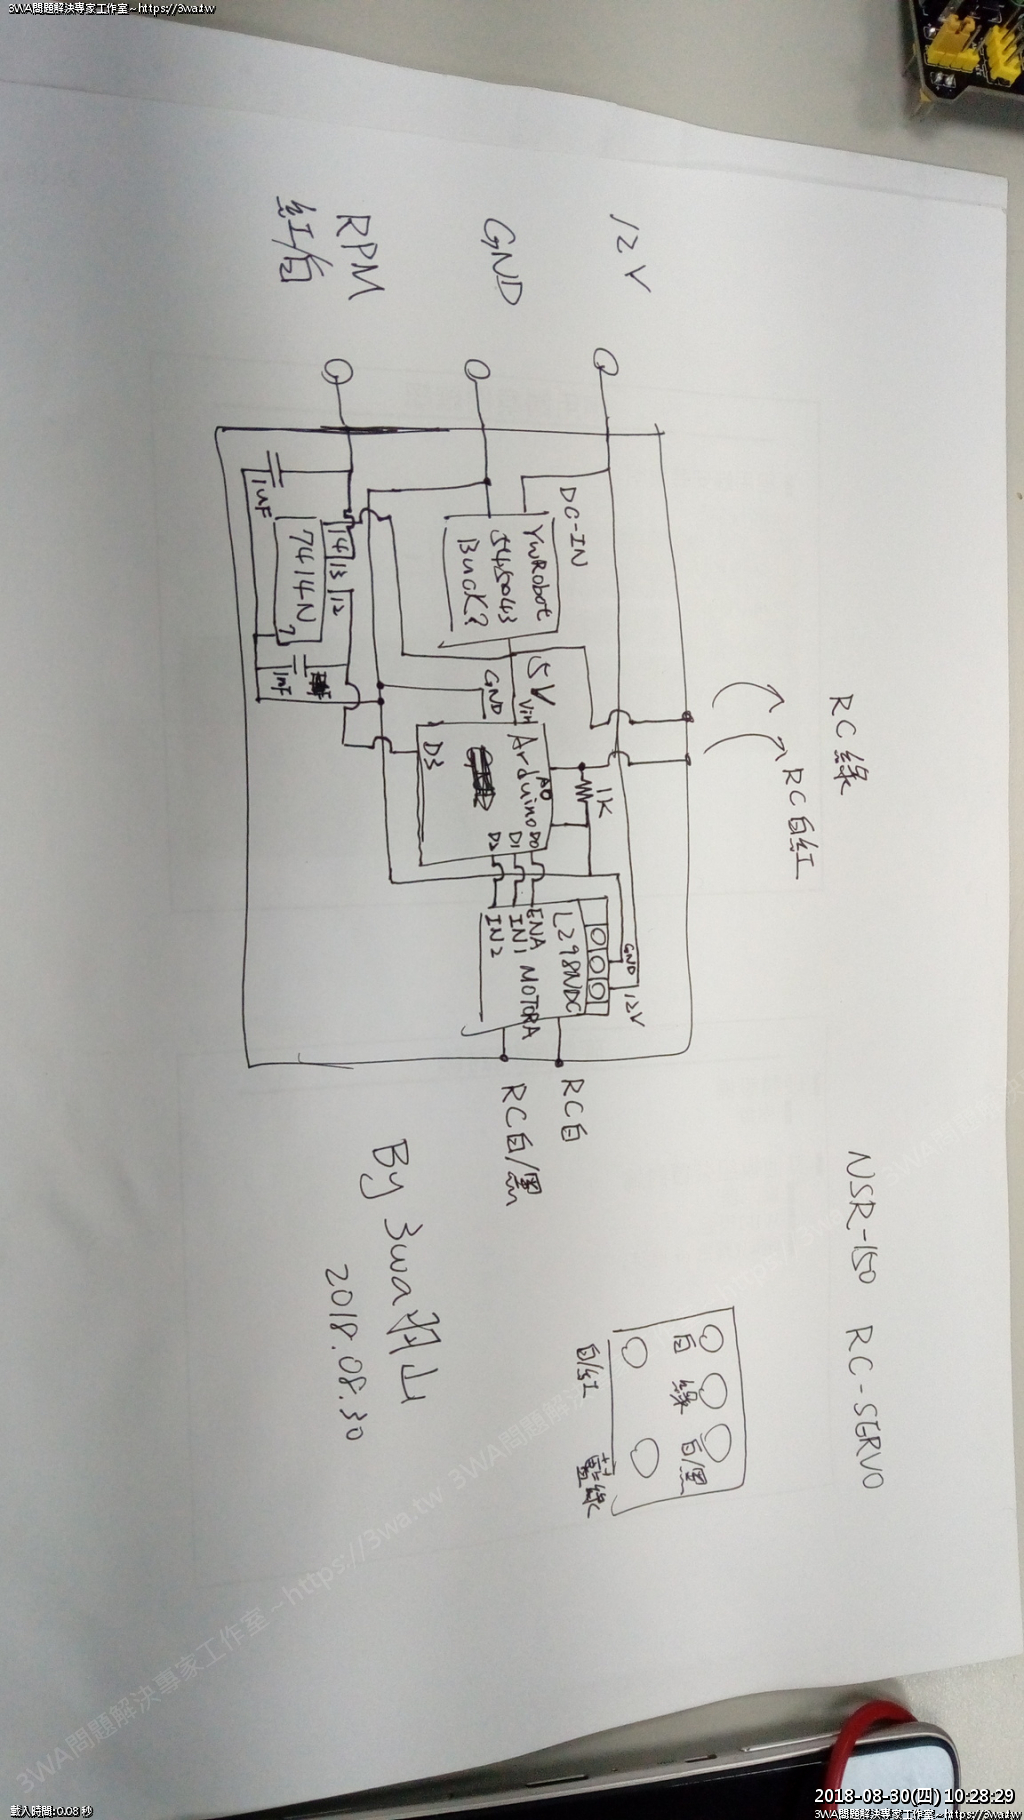 3WA問題解決專家工作室~https://3wa.tw
12V
GND
RPM
紅/白
RC綠
RC白紅
DC-IN
YwRobot
545043
Buck?
5V
GND
Vin
Arduino
A0
D0
D1
D2
D3
1K
1uF
7414N
14 13 12
7
1nF
L298NDC
ENA MOTORA
IN1
IN2
GND
12V
RC白
RC白/黑
NSR-150 RC-SERVO
白 綠 白/黑
白/紅
藍綠
By 3wa羽山
2018.08.30
3WA問題解決專家工作室~https://3wa.tw
載入時間:0.08 秒
2018-08-30(四) 10:28:29
3WA問題解決專家工作室~https://3wa.tw